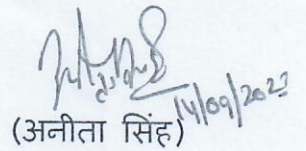 14/09/2023
(अनीता सिंह)